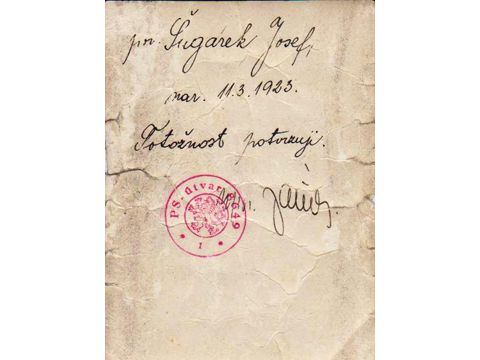 Šugárek Josef,
nar. 11.3.1923.
Totožnost potvrzuji.
PS. útvar 6649
1